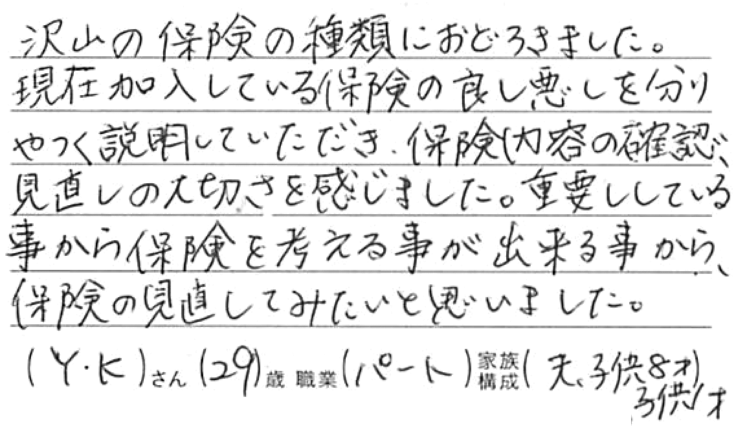 沢山の保険の種類におどろきました。
現在加入している保険の良し悪しを分り
やつく説明していただき、保険内容の確認、
見直しの大切さを感じました。重要ししている
事から保険を考える事が出来る事から、
保険の見直してみたいと思いました。
(Y・K)さん(29)歳 職業(パート)家族構成(夫、子供8才)
子供1才